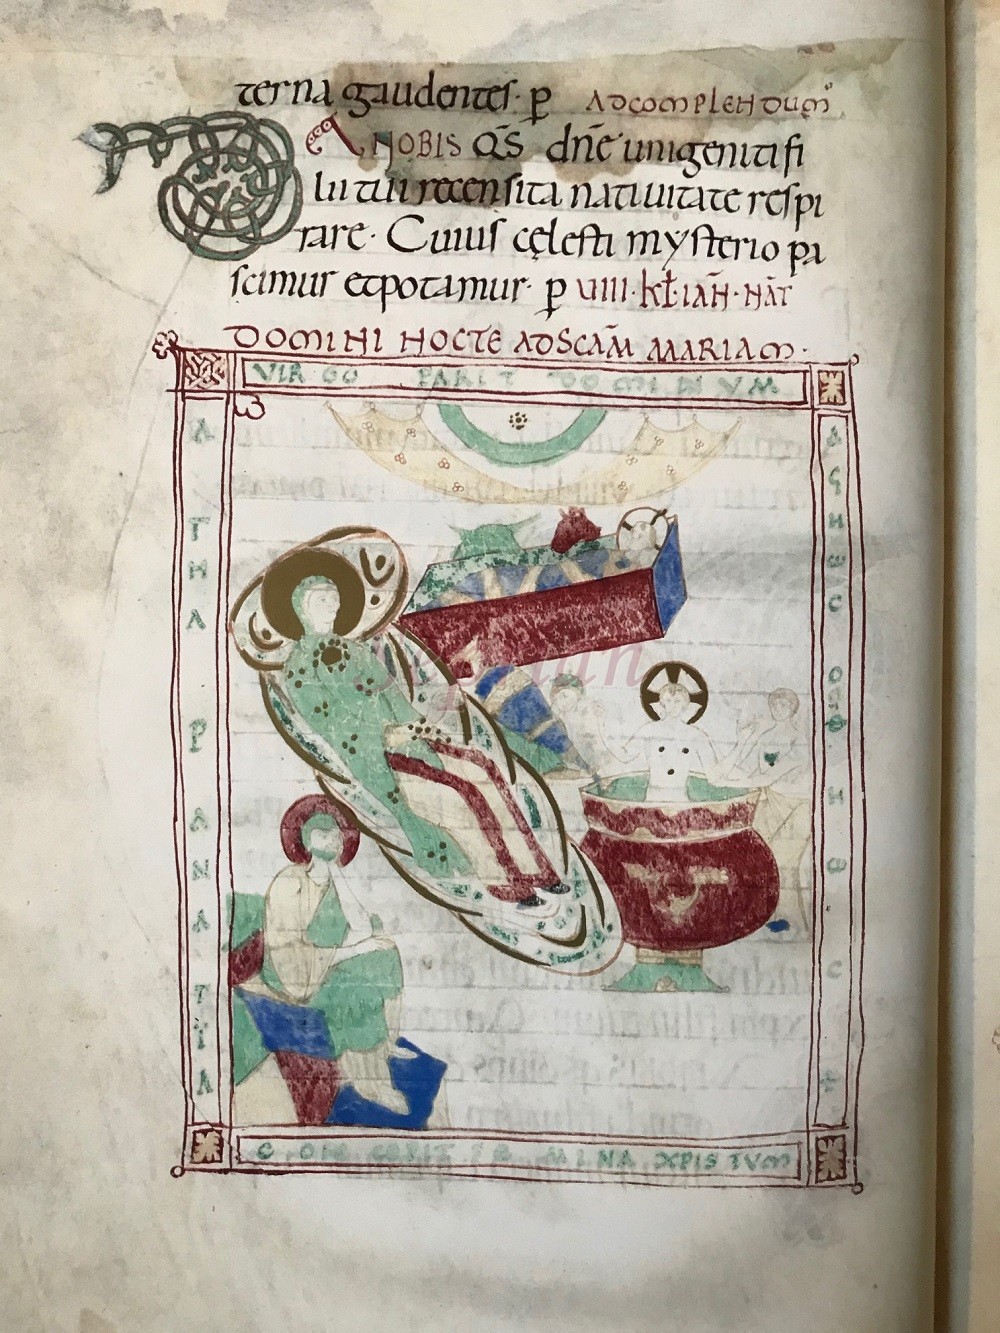 terna gaudentes· p̄ ADCOMPLENDUM
DA NOBIS QS̄ dn̄e unigeniti fi
lii tui recensita nativitate respi
rare· Cuius cęlesti mysterio pa
scimur et potamur· p̄ VIII·KL̄·IAN̄·NAT̄
DOMINI NOCTE AD SCĀM MARIAM·
VIRGO PARIT DOMINUM
CONCEPIT FEMINA XPISTUM